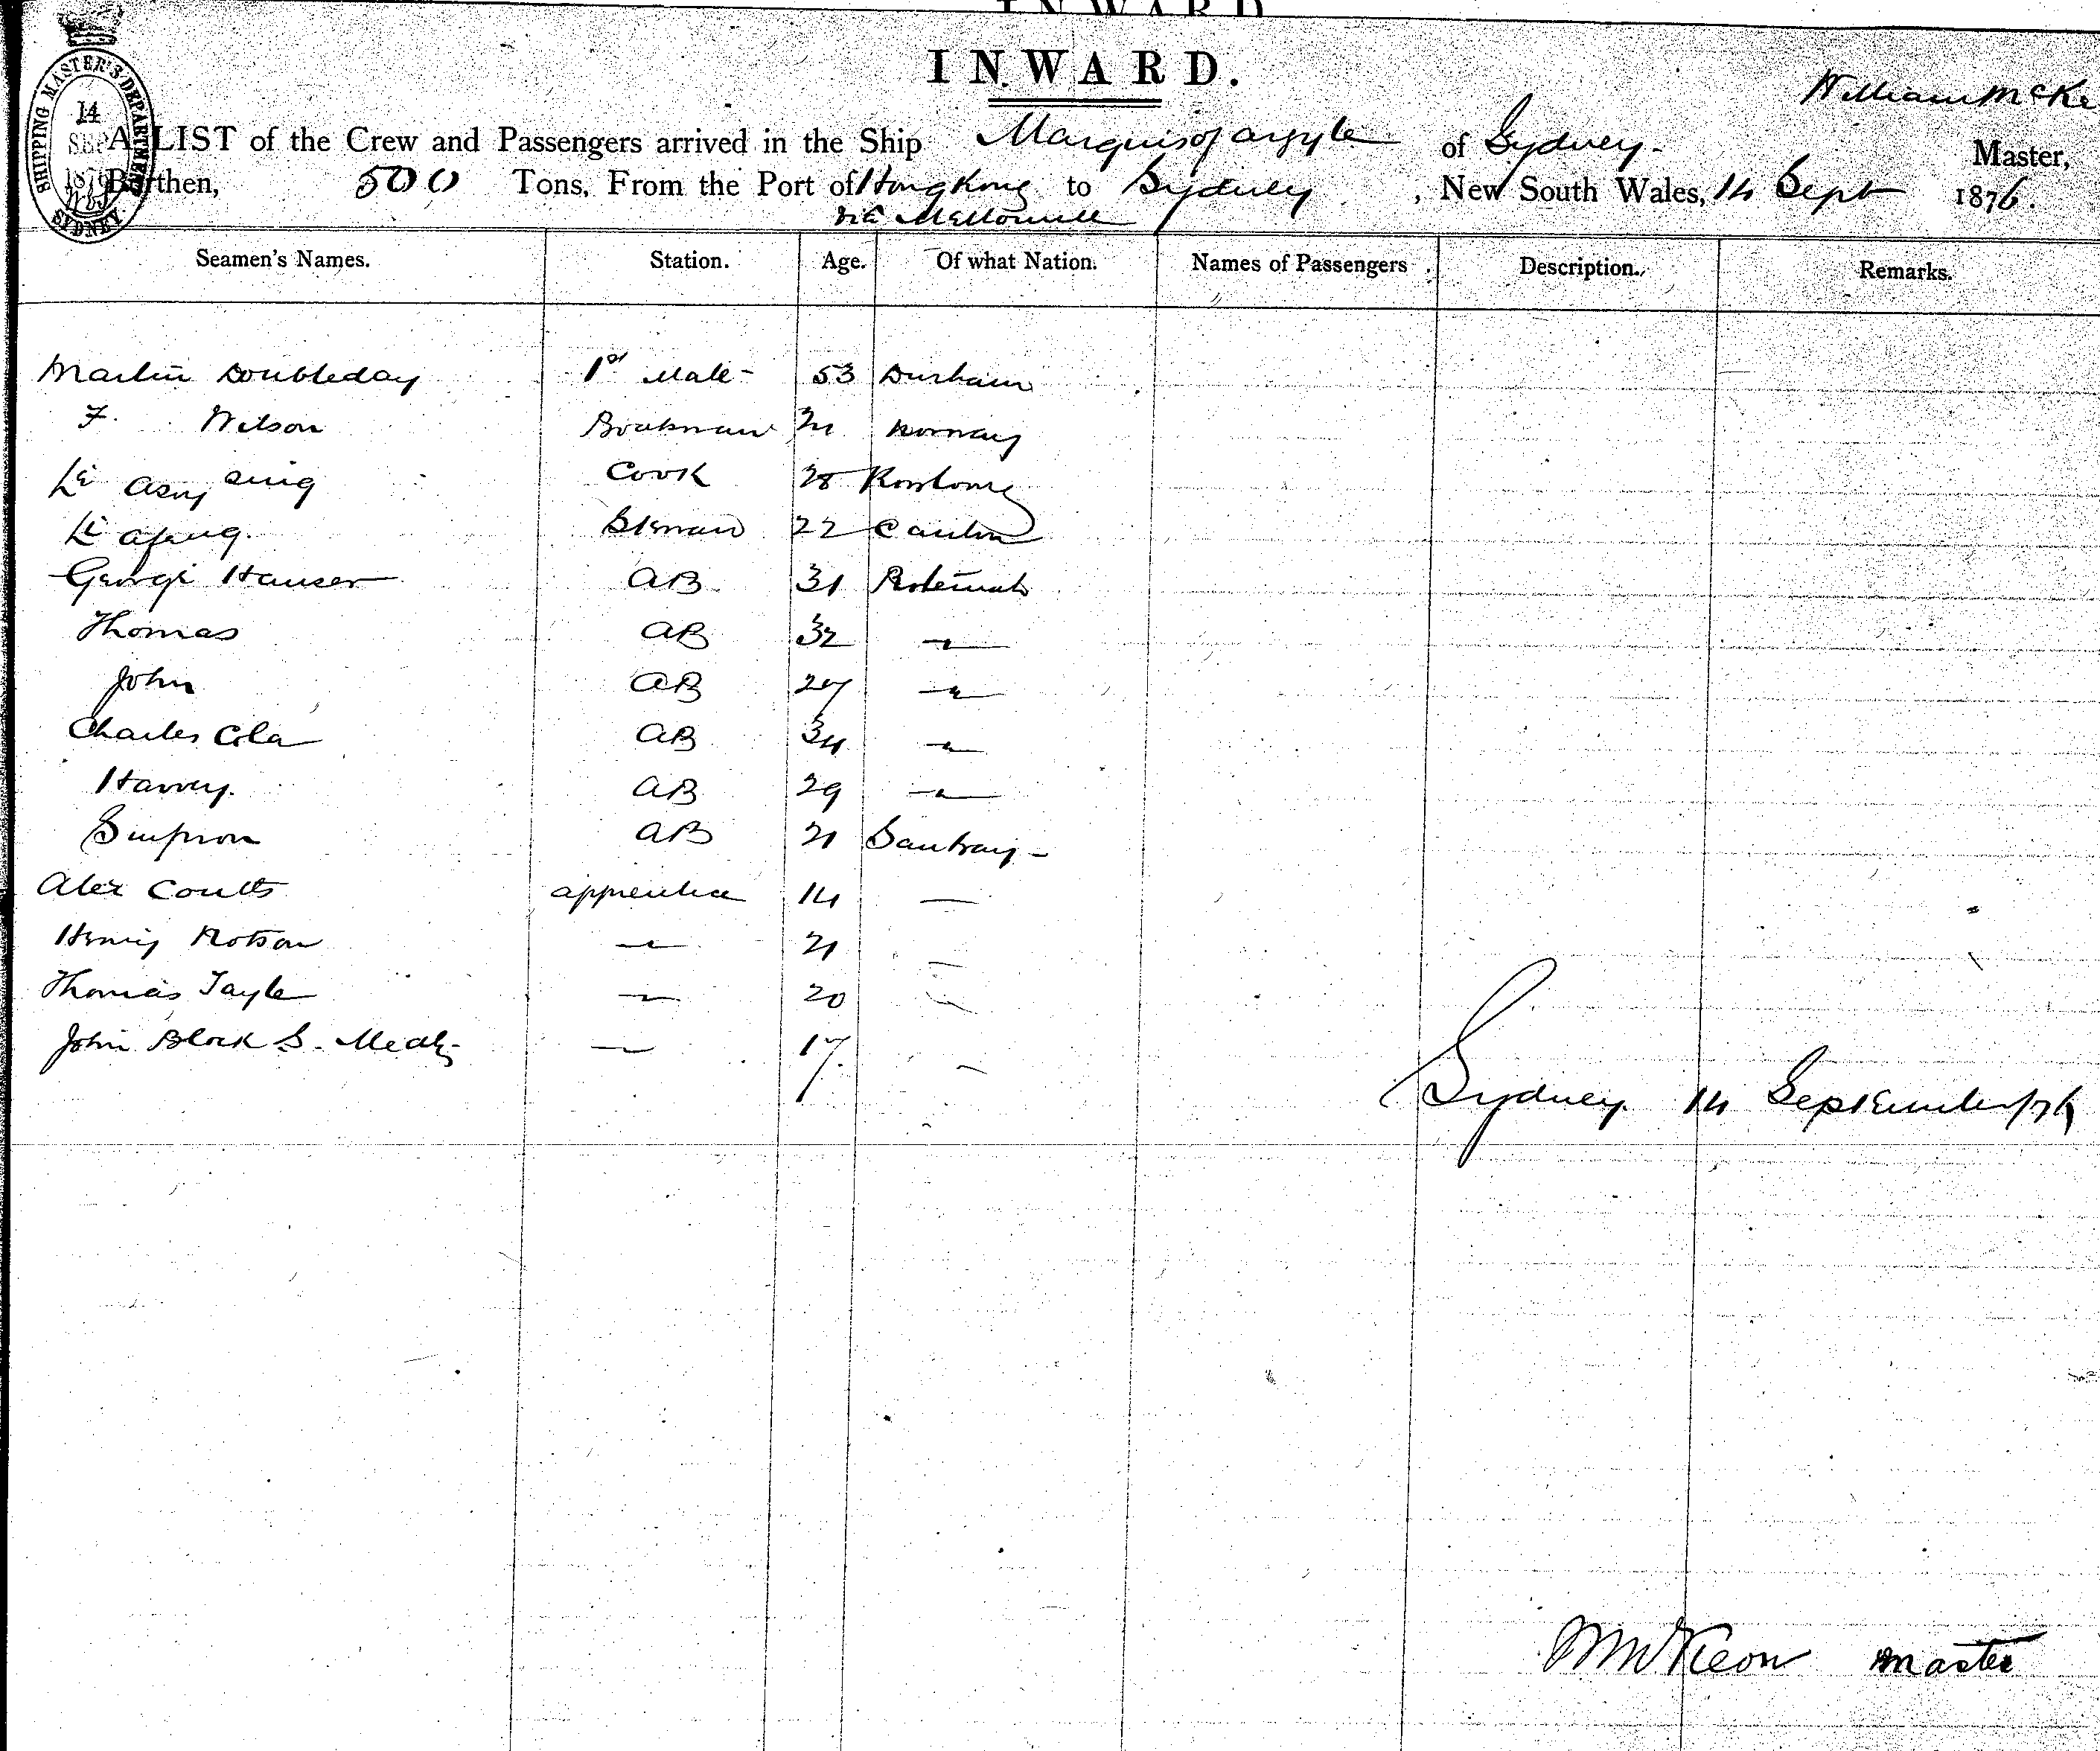 INWARD.
SHIPPING MASTER'S DEPARTMENT
14
SEP
1876
SYDNEY
William McKe
A LIST of the Crew and Passengers arrived in the Ship Marquis of argyle of Sydney. Master,
Burthen, 500 Tons, From the Port of Hong Kong to Sydney, New South Wales, 14 Sept 1876.
via Melbourne
Seamen's Names. Station. Age. Of what Nation. Names of Passengers. Description. Remarks.
Martin Doubleday 1st Mate 53 Durham
F. Wilson Norway
Li sing Cook 28
Li 22 Canton
George Hauser AB 31
Thomas AB 32 "
John AB 27 "
Charles Cola AB 34 "
Harvey. AB 29 "
Simpson AB 21
Alex Coutts apprentice 14 —
Henry " 21 —
Thomas Tayle " 20 —
John Black S. " 17. —
Sydney. 14 September/76
WmcKeon master